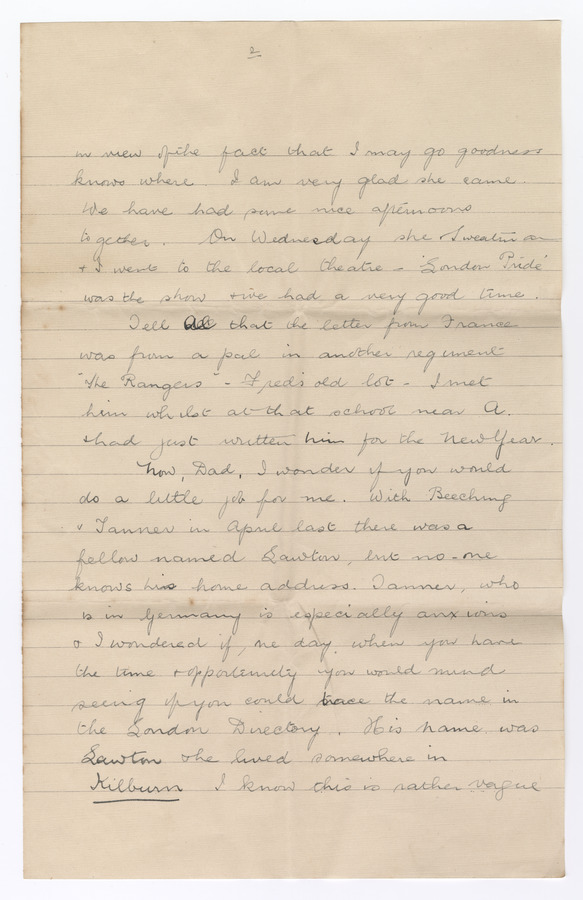 2
in view of the fact that I may go goodness
knows where. I am very glad she came.
We have had some nice afternoons
together. On Wednesday she Sweatman
+ I went to the local theatre - 'London Pride'
was the show + we had a very good time.
Tell that the letter from France
was from a pal in another regiment
"The Rangers" - Fred's old lot - I met
him whilst at that school near A.
+ had just written him for the New Year.
Now, Dad, I wonder if you would
do a little job for me. With Beeching
+ Tanner in April last there was a
fellow named Lawton, but no-one
knows his home address. Tanner, who
is in Germany is especially anxious
+ I wondered if, one day when you have
the time + opportunity you would mind
seeing if you could trace the name in
the London Directory. His name was
Lawton + he lived somewhere in
Kilburn I know this is rather vague